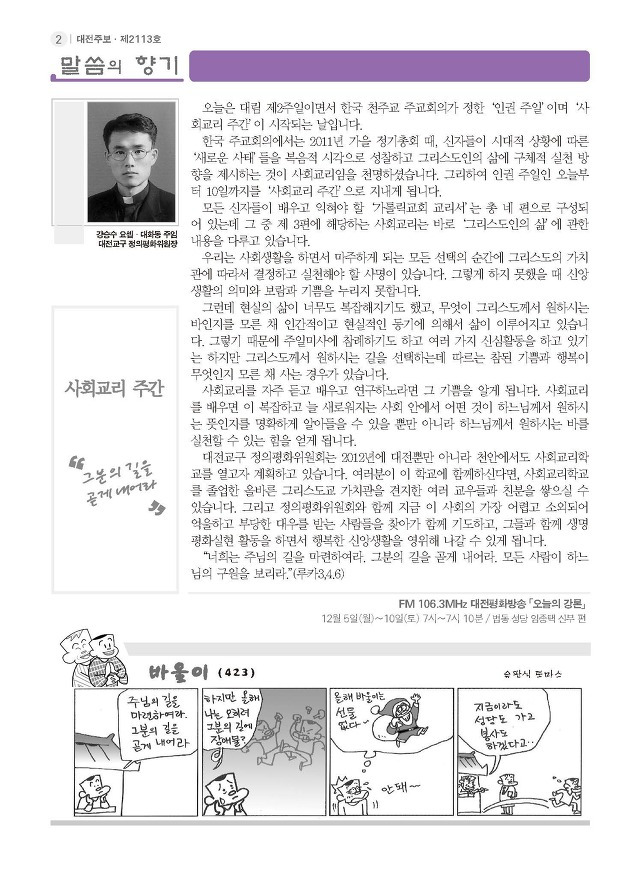 2 | 대전주보 · 제2113호
말씀의 향기
강승수 요셉 · 대화동 주임
대전교구 정의평화위원장
사회교리 주간
“그분의 길을
곧게 내어라”
오늘은 대림 제2주일이면서 한국 천주교 주교회의가 정한 ‘인권 주일’이며 ‘사
회교리 주간’이 시작되는 날입니다.
한국 주교회의에서는 2011년 가을 정기총회 때, 신자들이 시대적 상황에 따른
‘새로운 사태’들을 복음적 시각으로 성찰하고 그리스도인의 삶에 구체적 실천 방
향을 제시하는 것이 사회교리임을 천명하셨습니다. 그리하여 인권 주일인 오늘부
터 10일까지를 ‘사회교리 주간’으로 지내게 됩니다.
모든 신자들이 배우고 익혀야 할 ‘가톨릭교회 교리서’는 총 네 편으로 구성되
어 있는데 그 중 제 3편에 해당하는 사회교리는 바로 ‘그리스도인의 삶’에 관한
내용을 다루고 있습니다.
우리는 사회생활을 하면서 마주하게 되는 모든 선택의 순간에 그리스도의 가치
관에 따라서 결정하고 실천해야 할 사명이 있습니다. 그렇게 하지 못했을 때 신앙
생활의 의미와 보람과 기쁨을 누리지 못합니다.
그런데 현실의 삶이 너무도 복잡해지기도 했고, 무엇이 그리스도께서 원하시는
바인지를 모른 채 인간적이고 현실적인 동기에 의해서 삶이 이루어지고 있습니
다. 그렇기 때문에 주일미사에 참례하기도 하고 여러 가지 신심활동을 하고 있기
는 하지만 그리스도께서 원하시는 길을 선택하는데 따르는 참된 기쁨과 행복이
무엇인지 모른 채 사는 경우가 있습니다.
사회교리를 자주 듣고 배우고 연구하노라면 그 기쁨을 알게 됩니다. 사회교리
를 배우면 이 복잡하고 늘 새로워지는 사회 안에서 어떤 것이 하느님께서 원하시
는 뜻인지를 명확하게 알아들을 수 있을 뿐만 아니라 하느님께서 원하시는 바를
실천할 수 있는 힘을 얻게 됩니다.
대전교구 정의평화위원회는 2012년에 대전뿐만 아니라 천안에서도 사회교리학
교를 열고자 계획하고 있습니다. 여러분이 이 학교에 함께하신다면, 사회교리학교
를 졸업한 올바른 그리스도교 가치관을 견지한 여러 교우들과 친분을 쌓으실 수
있습니다. 그리고 정의평화위원회와 함께 지금 이 사회의 가장 어렵고 소외되어
억울하고 부당한 대우를 받는 사람들을 찾아가 함께 기도하고, 그들과 함께 생명
평화실현 활동을 하면서 행복한 신앙생활을 영위해 나갈 수 있게 됩니다.
“너희는 주님의 길을 마련하여라. 그분의 길을 곧게 내어라. 모든 사람이 하느
님의 구원을 보리라.”(루카3,4.6)
FM 106.3MHz 대전평화방송 「오늘의 강론」
12월 5일(월)~10일(토) 7시~7시 10분 / 법동 성당 임종택 신부 편
바울이 (423)
수만식 토마스
주님의 길을
마련하여라.
그분의 길을
곧게 내어라
하지만 올해
나는 오히려
그분의 길에
장애물?
올해 바울이는
선물
없다~
안돼~
지금이라도
성당도 가고
봉사도
하겠다고..